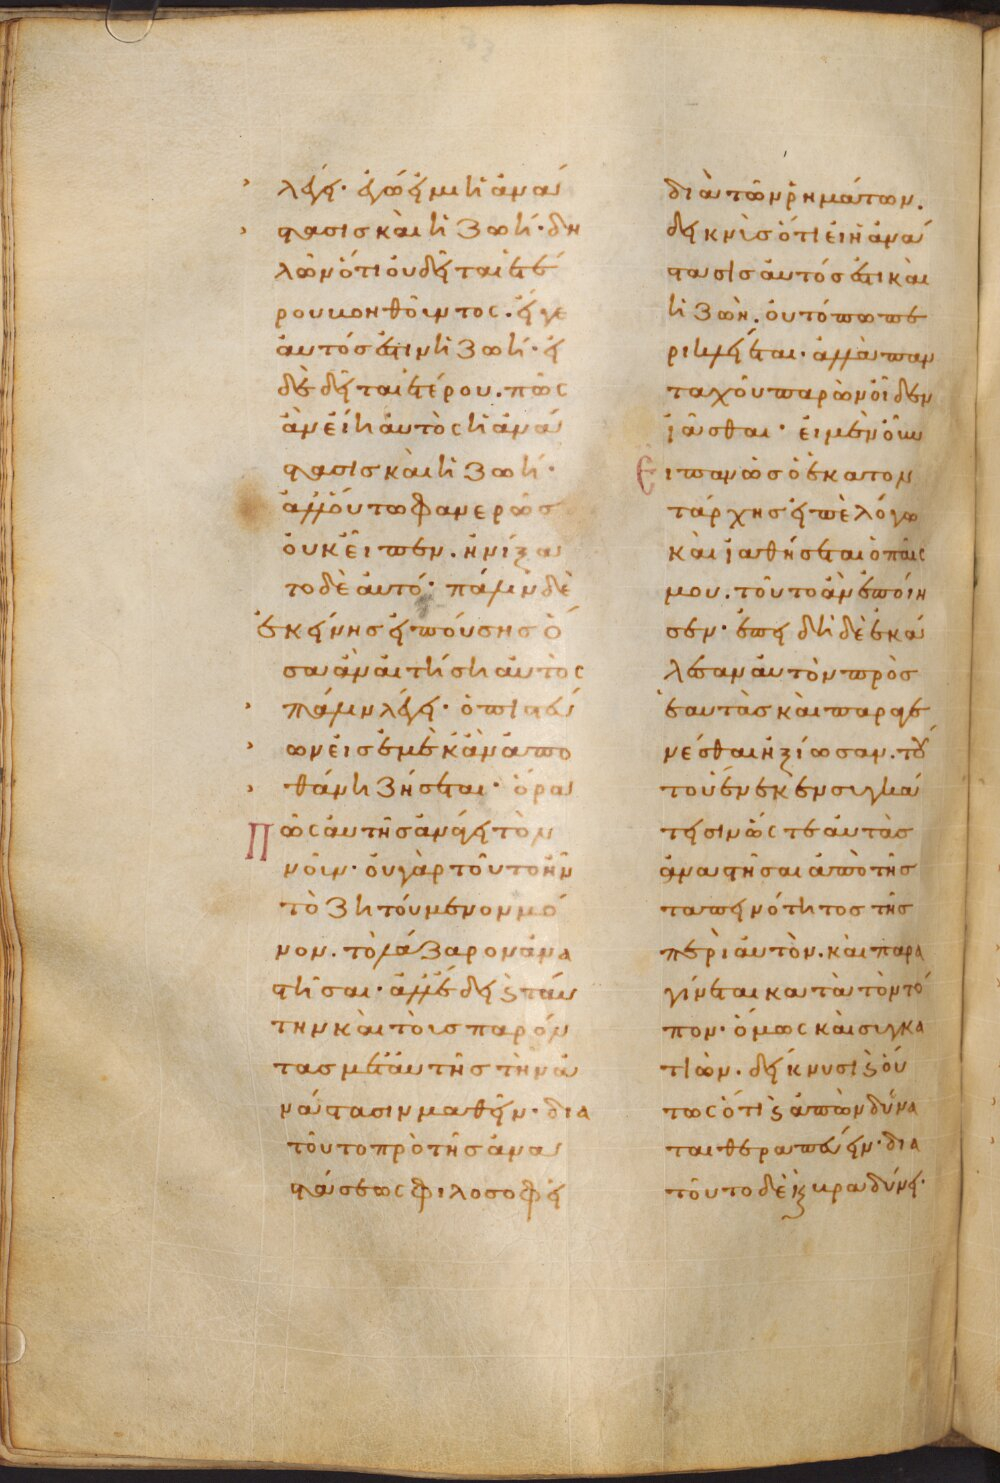 λέγει· ἐγώ εἰμι ἡ ἀνά
στασις καὶ ἡ ζωή· δη
λῶν ὅτι οὐ δεῖται ἑτέ
ρου βοηθοῦντος. εἴγε
αὐτός ἐστιν ἡ ζωή· εἰ
δὲ δεῖται ἑτέρου. πῶς
ἂν εἴη αὐτὸς ἡ ἀνά
στασις καὶ ἡ ζωή·
ἀλλ' οὕτω φανερῶς
οὐκ εἶπεν. ἠνίξα
το δὲ αὐτό· πάλιν δὲ
ἐκείνης εἰπούσης ὅ
σα ἂν αἰτήσῃ αὐτὸς
πάλιν λέγει· ὁ πιστεύ
ων εἰς ἐμὲ κἂν ἀπο
θάνῃ ζήσεται· ὅρα
πῶς αὐτῆς ἀνάγει τὸν
νοῦν· οὐ γὰρ τοῦτο ἦν
τὸ ζητούμενον μό
νον. τὸ λάζαρον ἀνα
στῆσαι· ἀλλ' ἔδει ϗ ταύ
την καὶ τοὺς παρόν
τας μετ' αὐτῆς τὴν ἀ
νάστασιν μαθεῖν· δια
τοῦτο πρὸ τῆς ἀνα
στάσεως φιλοσοφεῖ
διὰ τῶν ῥημάτων.
δεικνὺς ὅτι εἰ ἡ ἀνά
στασις αὐτός ἐστι καὶ
ἡ ζωὴ. οὐ τόπω πε
ρικλείεται· ἀλλὰ παν
ταχοῦ παρὼν οἶδεν
ἰᾶσθαι· εἰ μὲν οὖν
εἶπαν ὡς ὁ ἑκατον
τάρχης εἰπὲ λόγω
καὶ ἰαθήσεται ὁ παῖς
μου. τοῦτο ἂν ἐποίη
σεν· ἐπειδὴ δὲ ἐκά
λεσαν αὐτὸν πρὸς
ἑαυτὰς καὶ παραγε
νέσθαι ἠξίωσαν. τού
του ἕνεκεν συγκα
τεισιν ὥστε αὐτὰς
ἀναστῆσαι ἀπὸ τῆς
ταπεινότητος τῆς
περὶ αὐτὸν. καὶ παρα
γίνεται κατὰ τὸν τό
πον· ὅμως καὶ συγκα
τιὼν. δείκνυσι ϗ οὕ
τως ὅτι ϗ ἀπὼν δύνα
ται θεραπεύειν· δια
τοῦτο δὲ ϗ βραδύνει·